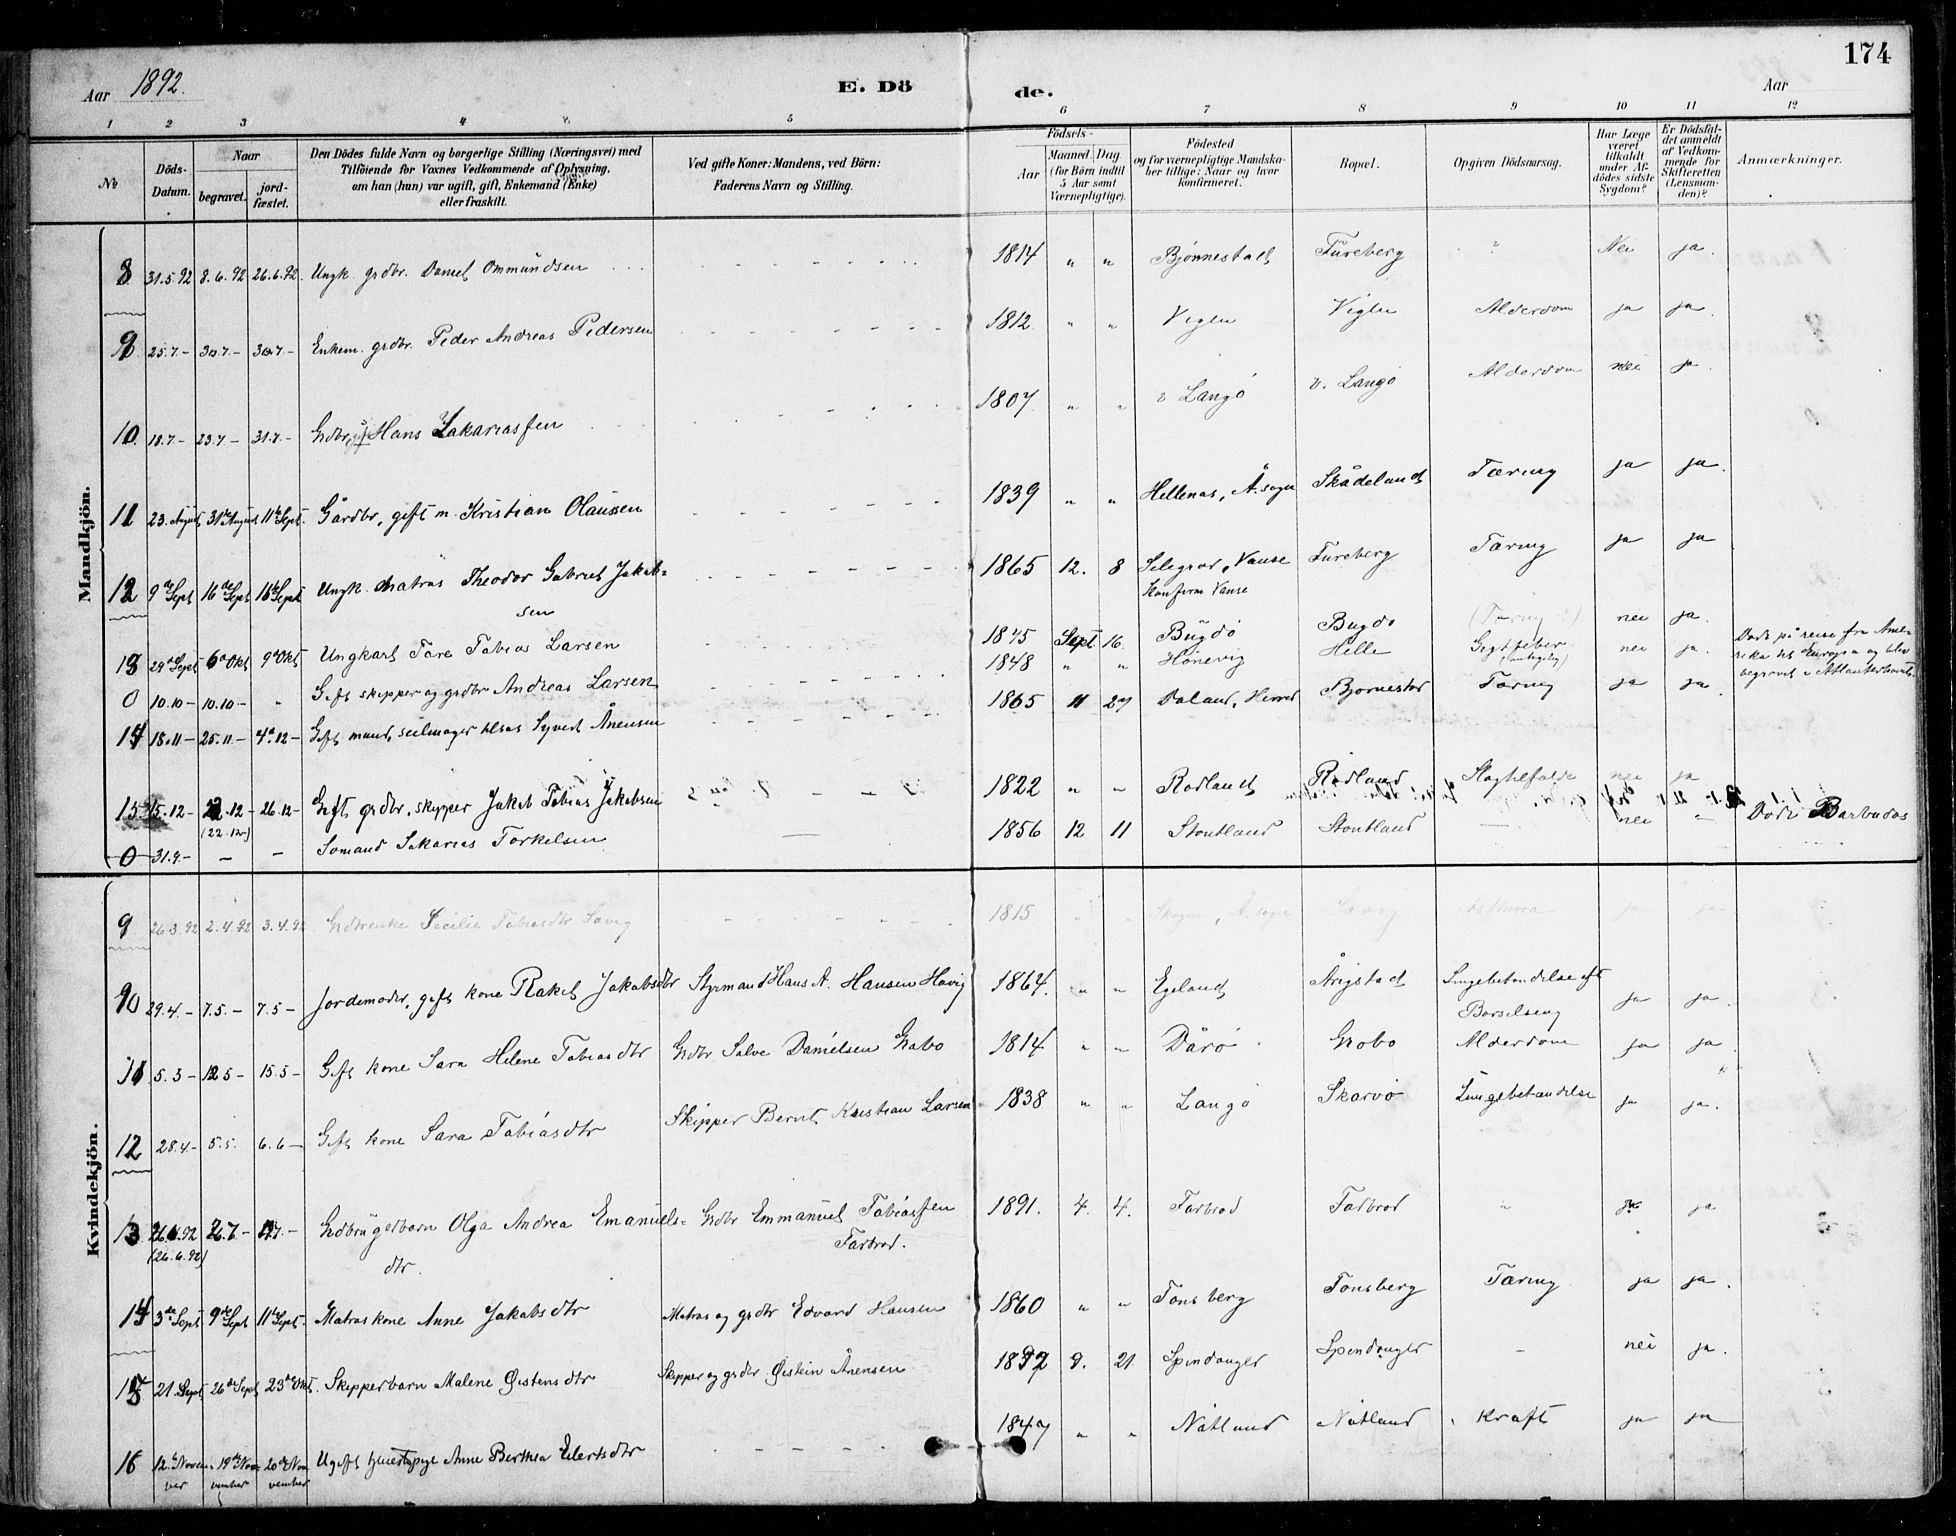 174
Aar 1892.
E. Dö de.
Aar
1 2 3 4 5 6 7 8 9 10 11 12
No
Döds-Datum.
Naar
begravet.
jord-fæstet.
Den Dödes fulde Navn og borgerlige Stilling (Næringsvei) med
Tilföiende for Voxnes Vedkommende af Oplysning,
om han (hun) var ugift, gift, Enkemand (Enke)
eller fraskilt.
Ved gifte Koner: Mandens, ved Börn:
Faderens Navn og Stilling.
Födsels-
Aar
Maaned. Dag
(for Börn indtil
5 Aar samt
Værnepligtige).
Födested
og for værnepligtige Mandska-
ber tillige: Naar og hvor
konfirmeret.
Bopæl.
Opgiven Dödsaarsag.
Har Læge
været
tilkaldt
under Af-
dödes sidste
Sygdom?
Er Dödsfal-
det anmeldt
af Vedkom-
mende for
Skifteretten
(Lensman-
den)?
Anmærkninger.
Mandkjön.
8 31.5.92 8.6.92 26.6.92. Ungk. grdbr. Daniel Ommundsen 1814 " " Bjønnestad Fureberg " Nei ja.
9 25.7.- 30.7- 30.7- Enkem. grdbr. Peder Andreas Pedersen 1812. " " Viglen Viglen Alderdom ja ja.
10. 18.7- 23.7- 31.7- Grdbr. Hans Zakariasſen 1807 " " v Langö v. Langö Alderdom nei ja.
11 23. August 31te August 11te Sept. Gårdbr, gift m. Kristian Olaussen 1839 " " Hellenes, Å. sogn Skådeland Tæring ja ja.
12 9de Sept 16de Sept 11te Sept Ungk. Matros Theodor Gabriel Jakob-
sen 1865 12. 8 Selegrod, Vanse Fureberg Tæring ja ja
Konfirm Vanse
13 29de Sept 6te Okt 9de Okt Ungkarl Tore Tobias Larsen 1875 Sept 16. Bugdö Bugdö (Tæring?) nei ja.
0 10.10- 10.10- " Gift skipper og grdbr Andreas Larsen 1848 " " Hönevig Helle nei ja. Døde på reise fra Ame-
rika til Europa og blev
begravet i Atlanterhavet.
14 18.11- 25.11- 4de 12- Gift mand, seilmager Syvert Ånensen 1865 11 27 Daland, Herred Bjørnestad Tæring ja ja.
15 15.12- 22.12- 26.12- Gift grdbr, skipper Jakob Tobias Jakobsen 1822 " " Rødland Rødland Slagtilfælde nei ja
(22.12)
0 31.9- - - Sømand Sakarias Torkelsen 1856 12 11 Stoutland Stoutland - nei " Døde Barbados
Kvindekjön.
9 26.3.92 2.4.92 3.4.92. Grdbrenke Cecilie Tobiasdtr Søvig 1815 " " Skogen, Å. sogn Søvig Asthma ja ja
10 29.4.- 7.5.- 7.5- Jordemoder, gift kone Rakel Jakobsdtr Styrmand Hans A. Hansen Høvig 1864. " " Egeland Årigstad Lungebetændelse eft
Barselseng ja ja.
11 5.3- 12.5- 15.5- Gift kone Sara Helene Tobiasdtr Grdbr Salve Danielsen Grobo 1814 " " Dårø Grobo Alderdom ja ja.
12 28.4- 5.5. 6.6- Gift kone Sara Tobiasdtr Skipper Bernt Kristian Larsen 1838 " " Langö Skarvö Lungebetændelse ja ja.
13 26.6.92 2.7- Grdbrugerbarn Olga Andrea Emanuels-
dtr. Grdbr Emmanuel Tobiasſen
Farbrod. 1891. 4. 4. Farbrod Farbrod " ja ja
(26.6.92)
14 3de Sept 9de Sept 11te Sept. Matros kone Anne Jakobsdtr Matros og grdbr Edvard Hansen 1860 " " Tonsberg Tonsberg Tæring ja ja.
15 21. Sept 26de Sept 23de Okt. Skipperbarn Malene Øistensdtr Skipper og grdbr. Øistein Ånensen 1892 9. 21 Spindanger Spindanger - nei ja.
16 12te Novem-
ber 19de No-
vember 20de No-
vember Ugift tjenestepige Anne Berthea Eilertsdtr 1847 " " Nåtland Nåtland kræft ja ja